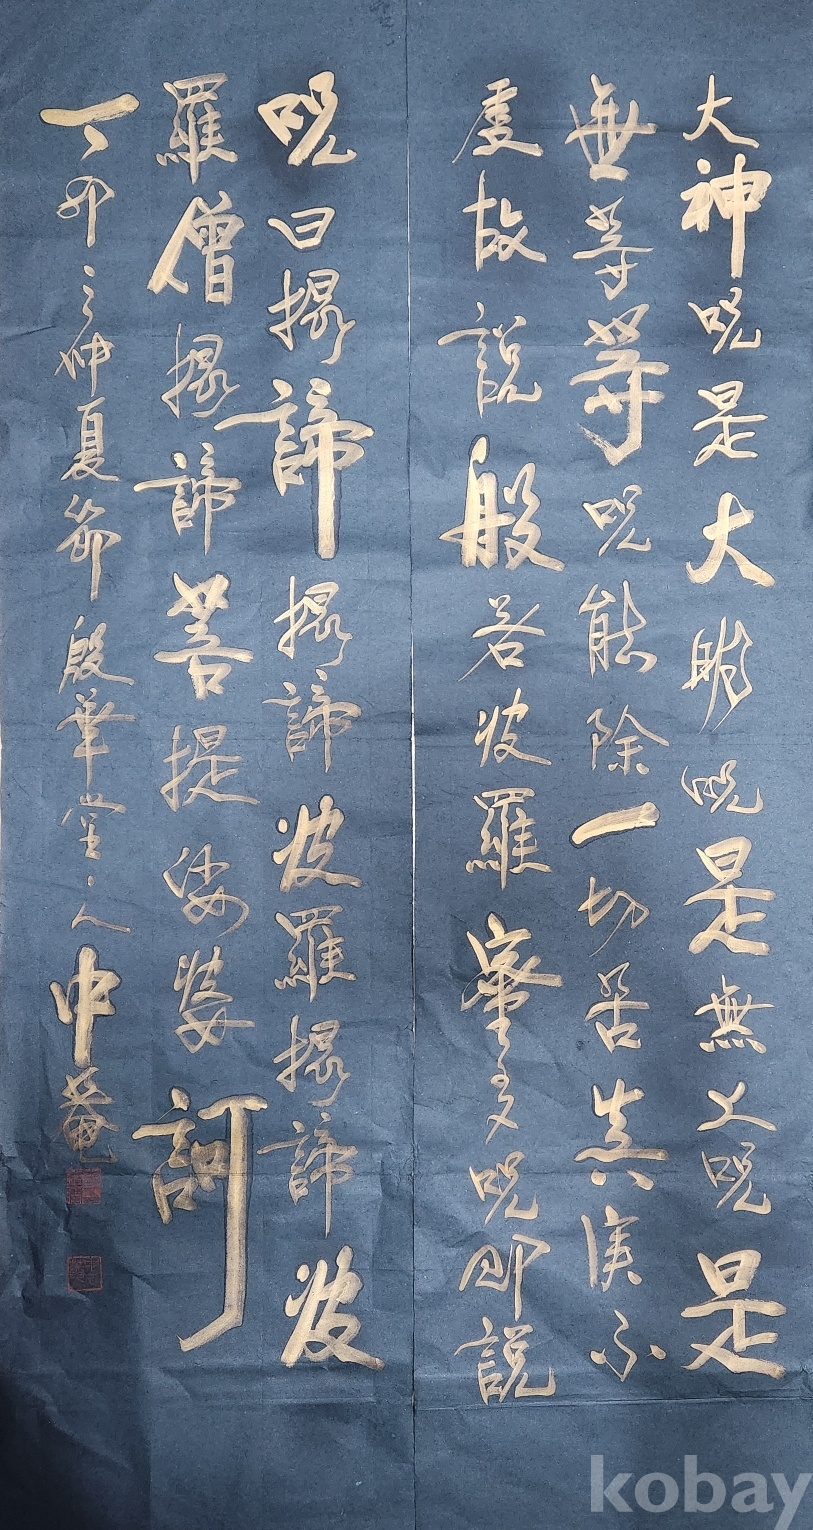 大神呪是大明呪是無上呪是
無等等呪能除一切苦真實不
虛故說般若波羅蜜多呪即說
呪曰揭諦揭諦波羅揭諦波
羅僧揭諦菩提娑婆訶
丁卯之仲夏節殷華堂主人中菴
kobay